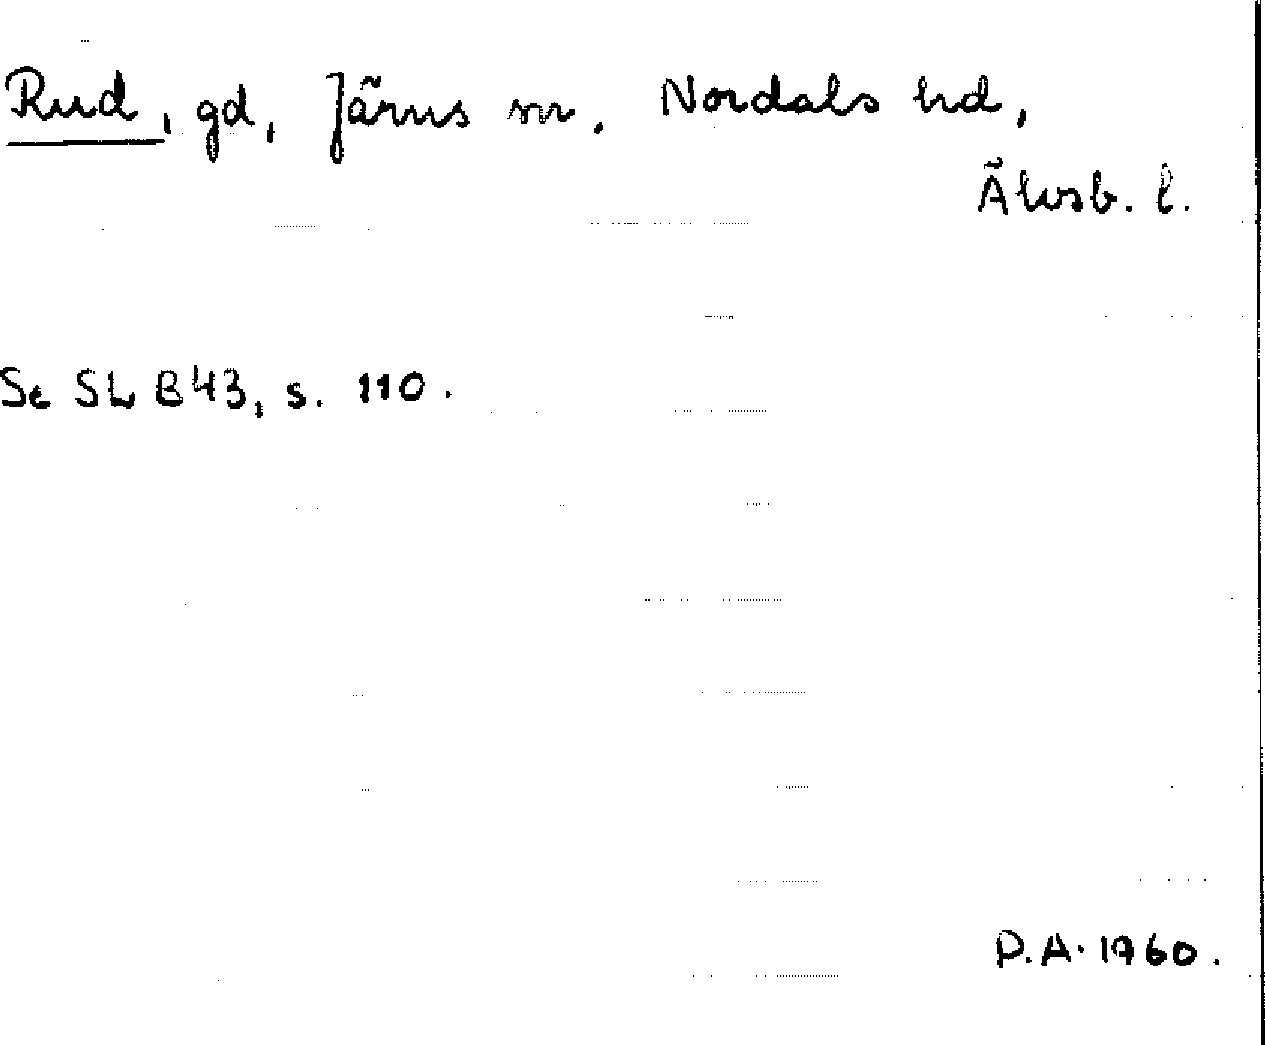 Rud, gd, Järns sn. Nordals hd,
Älvsb. l.
Se SL B43, s. 110.
P.A. 1960.